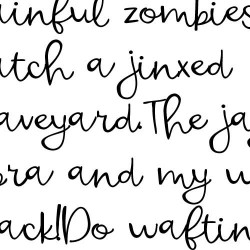 ainful zombies
atch a jinxed
aveyard.The ja
ora and my w
ack!Do waftin